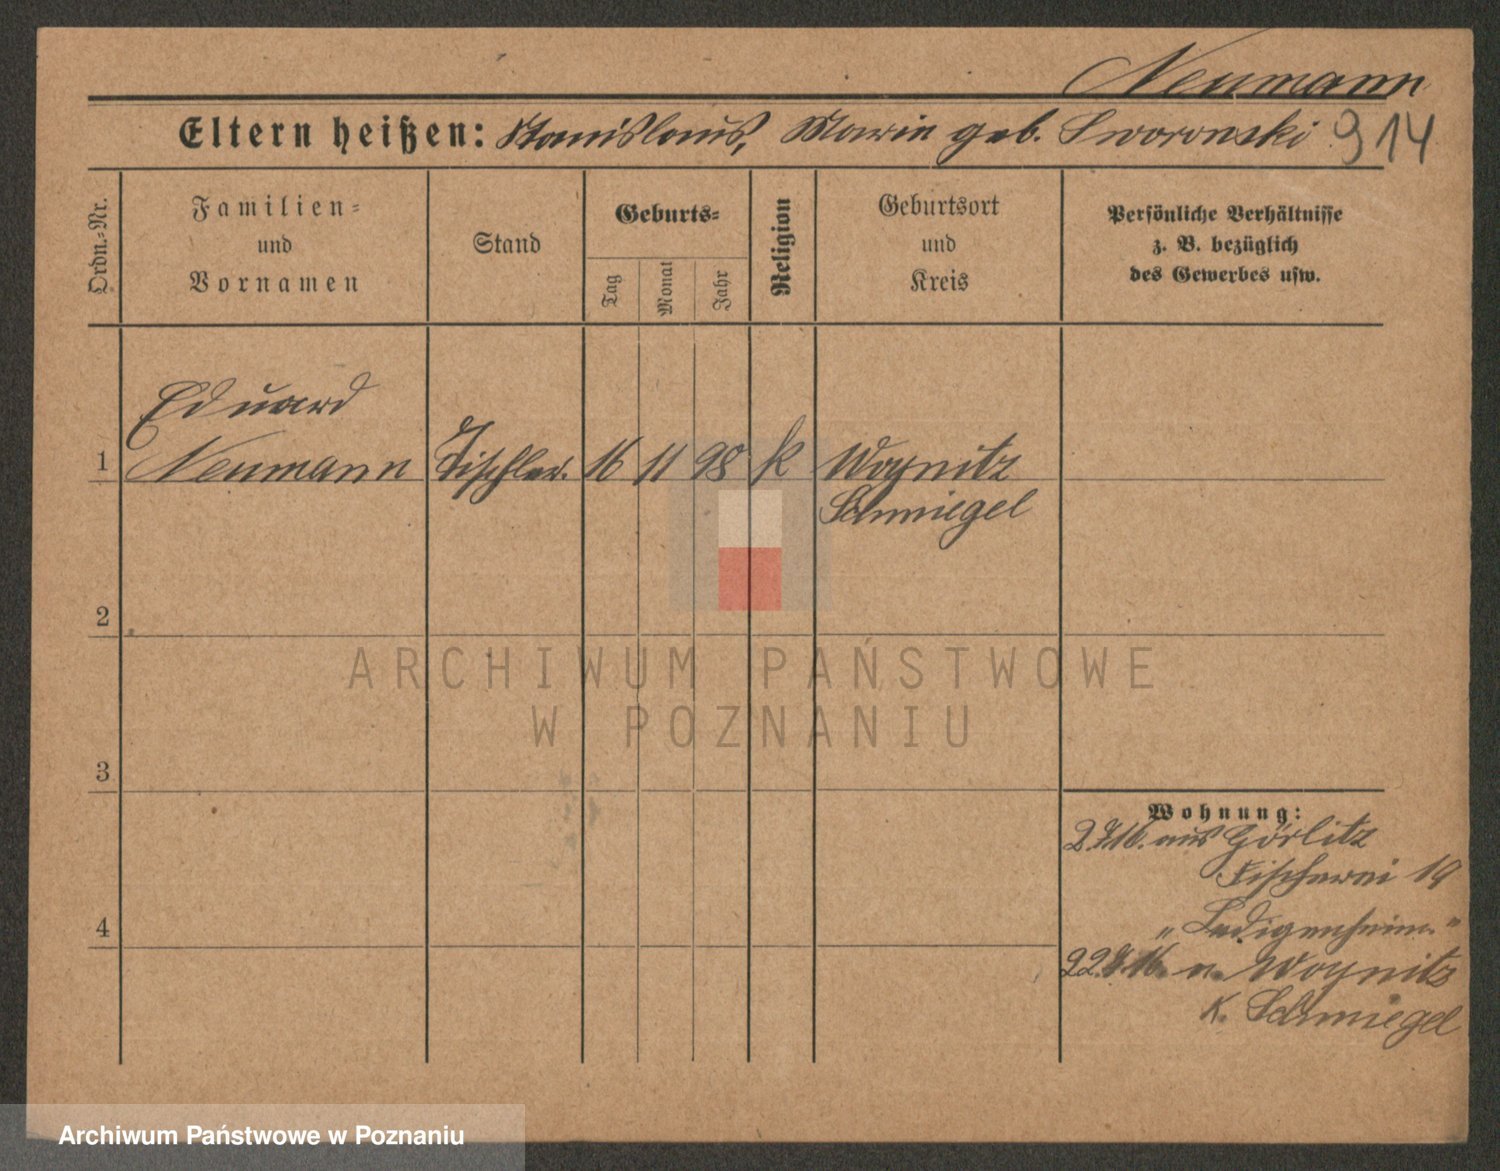 Neumann
Eltern heißen: Stanislaus, Marie geb. Sworowski 914
Ordn.-Nr.
Familien-
und
Vornamen
Stand
Geburts-
Tag
Monat
Jahr
Religion
Geburtsort
und
Kreis
Persönliche Verhältnisse
z. B. bezüglich
des Gewerbes usw.
Eduard
1 Neumann Tischler. 16 11 98 k Woynitz
Schmiegel
2
ARCHIWUM PAŃSTWOWE
W POZNANIU
3
Wohnung:
aus Görlitz
Fischerei 19
"Ledigenheim."
4
n. Woynitz
K. Schmiegel
Archiwum Państwowe w Poznaniu